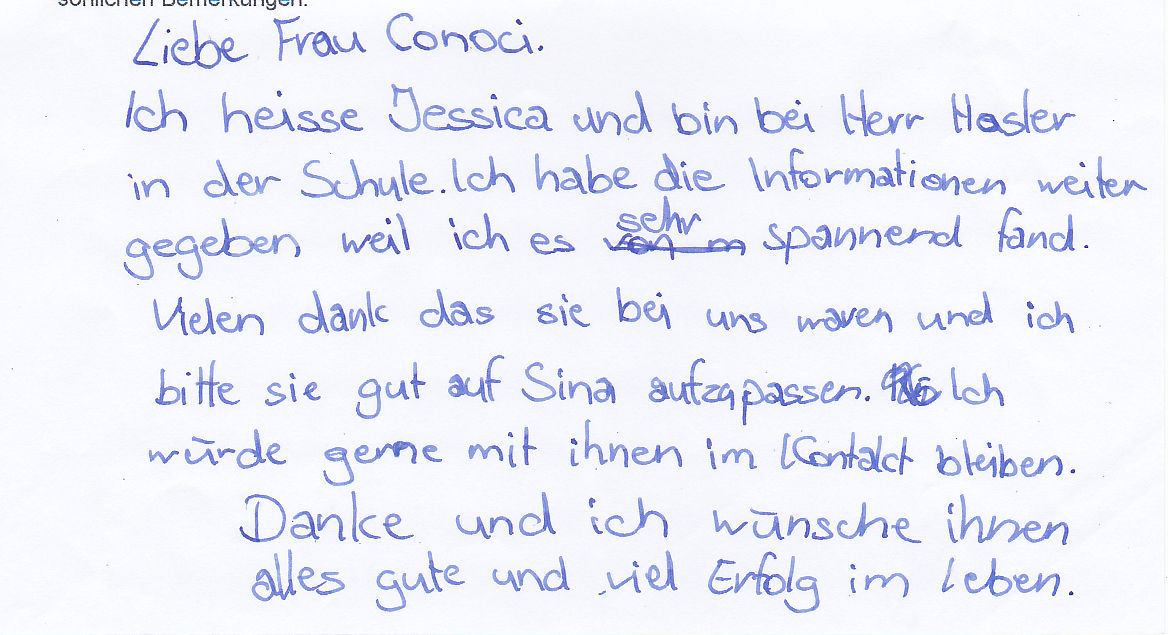 sönlichen Bemerkungen:
Liebe Frau Conoci.
Ich heisse Jessica und bin bei Herr Hasler
in der Schule. Ich habe die Informationen weiter
gegeben, weil ich es sehr spannend fand.
Vielen dank das sie bei uns waren und ich
bitte sie gut auf Sina aufzupassen. Ich
würde gerne mit ihnen im Kontakt bleiben.
Danke und ich wünsche ihnen
alles gute und viel Erfolg im leben.